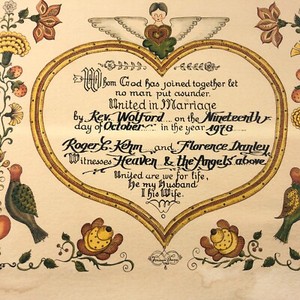 Whom God has joined together let
no man put asunder.
United in Marriage
by Rev. Wolford on the Nineteenth
day of October in the year 1978
Roger L. Kehm and Florence Danley
Witnesses Heaven & the Angels above.
United are we for life,
He my Husband
I his Wife.